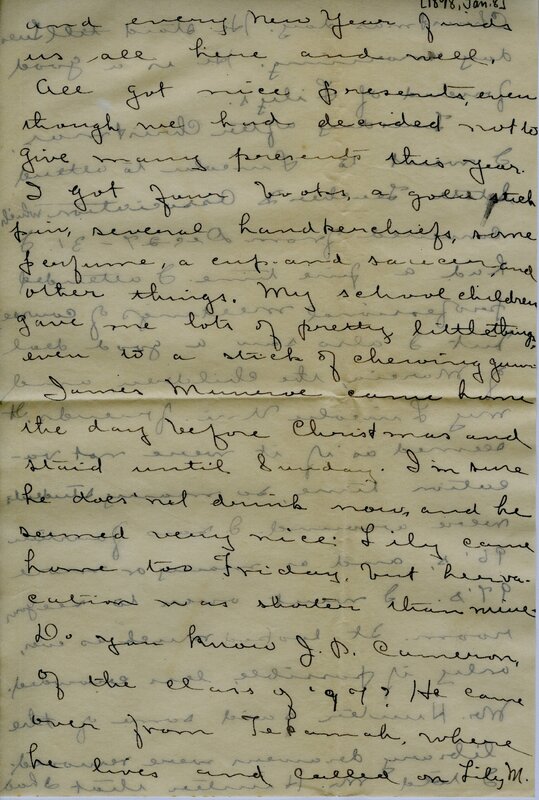 [1898, Jan. 8]
and every New Year finds
us all here and well.
All got nice presents, even
though we had decided not to
give many presents this year.
I got four books, a gold stick
pin, several handkerchiefs, some
perfume, a cup and saucer, and
other things. My school children
gave me lots of pretty little things,
even to a stick of chewing gum.
James Munroe came home
the day before Christmas and
staid until Sunday. I'm sure
he does not drink now, and he
seemed very nice. Lily came
home too Friday, but her va-
cation was shorter than mine.
Do you know J. P. Cameron,
of the class of '97? He came
over from Tekamah, where
he lives and called on Lily M.